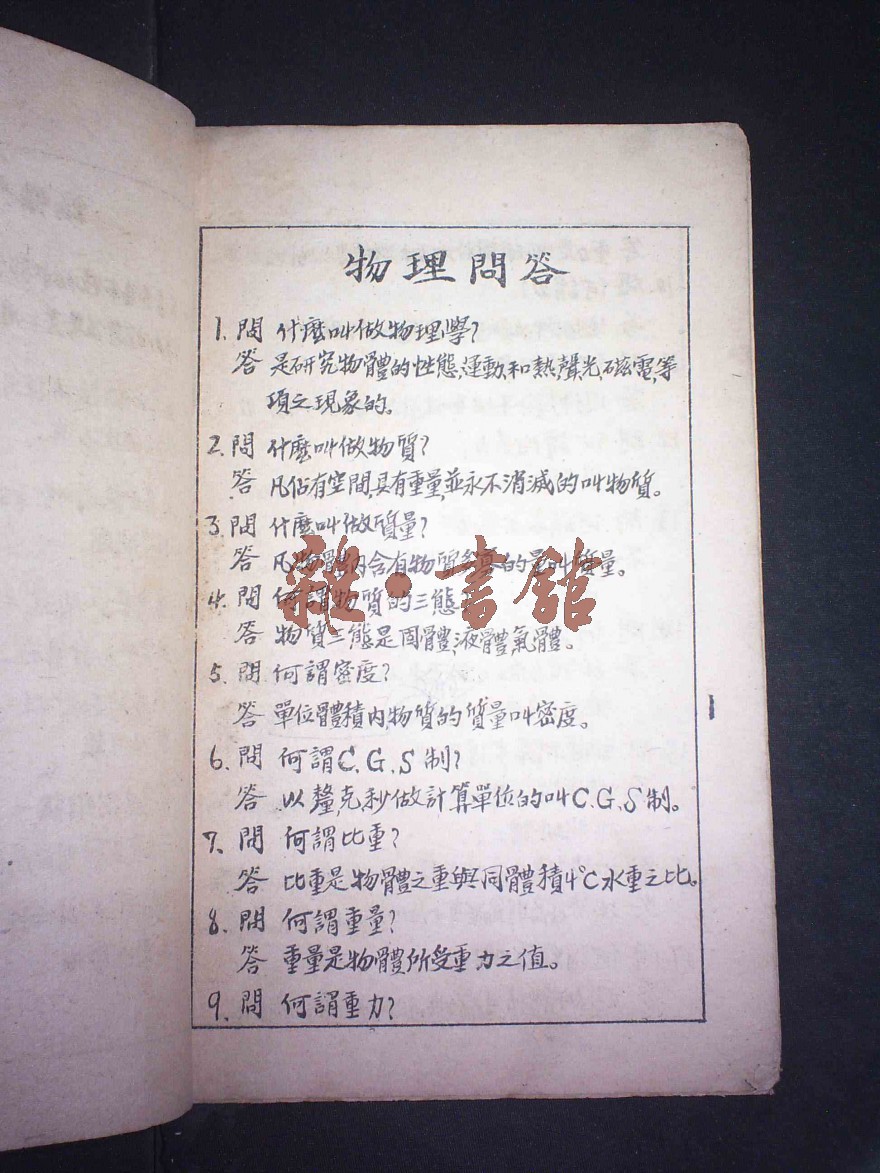 物理問答
1. 問 什麼叫做物理學?
答 是研究物體的性態,運動,和熱,聲,光,磁,電,等
項之現象的。
2. 問 什麼叫做物質?
答 凡佔有空間,具有重量,並永不消滅的叫物質。
3. 問 什麼叫做質量?
答 凡物體內含有物質多寡的量叫質量。
4. 問 何謂物質的三態
答 物質三態是固體,液體,氣體。
5. 問 何謂密度?
答 單位體積内物質的質量叫密度。
6. 問 何謂C.G.S制?
答 以釐克秒做計算單位的叫C.G.S制。
7. 問 何謂比重?
答 比重是物體之重與同體積4°C水重之比。
8. 問 何謂重量?
答 重量是物體所受重力之值。
9. 問 何謂重力?
雜·書館